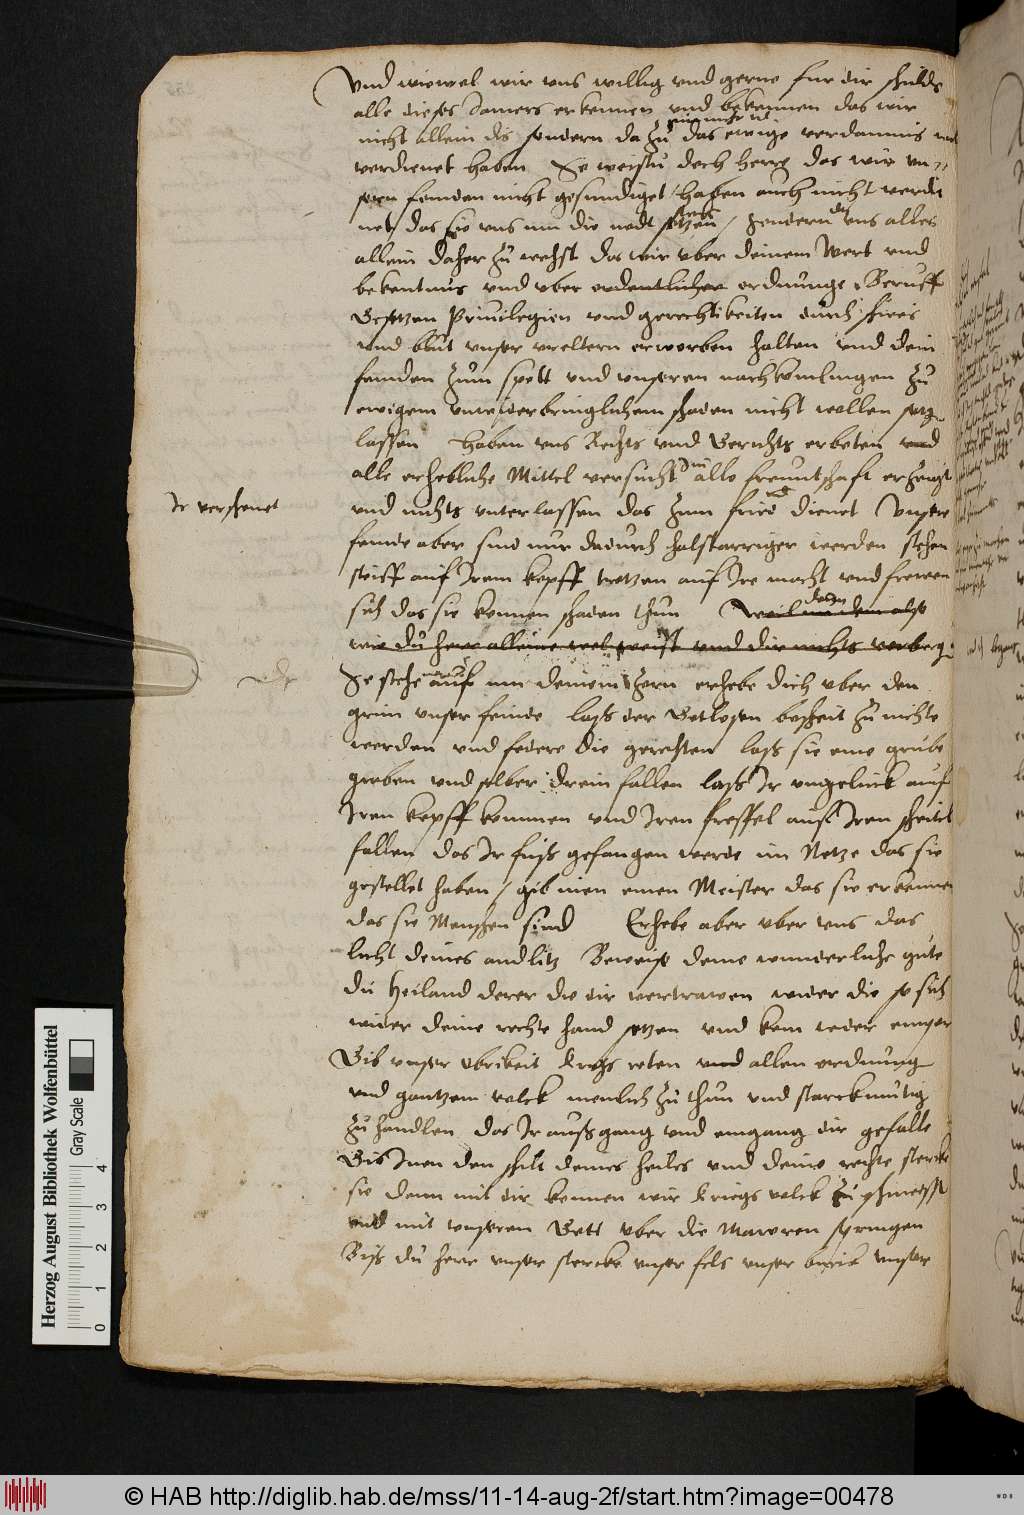 Vnd wiewol wir vns willig vnd gerne fur dir schulds
alle dieses Jamers erkennen vnd bekennen das wir
nicht allein dis sondern da zu das ewige verdamnis
verdienet haben So weistu doch herre das wir vn
sern feinden nicht gesundiget / haben auch nicht verdi
net / das sie vns vmb die nodt setzen / sondern vns alles
allein daher zu wechst das wir vber deinem Wort vnd
bekentnus vnd vber ordentlicher ordnunge Beruff
Gesetzen Priuilegien vnd gerechtikeiten durch
vnd blut vnser vreltern erworben halten vnd dein
feinden zum spott vnd vnseren nachkomlingen zu
ewigem vnwiderbringlichem schaden nicht wollen
lassen haben vns Rechts vnd Gerichts erboten vnd
alle erhebliche Mittel versucht alle freuntschaft erzeigt
vnd nichts vnterlassen das zum fried dienet Vnsere
Ir verschonet
feinde aber sind nur dadurch halstarriger worden stehen
steiff auf Irem kopff trotzen auf Ire macht vnd frewen
sich das sie konnen schaden thun
wie du herr alleine wol weist vnd dir nichts verborg
So stehe auf in deinem Zorn erhebe dich vber den
grim vnser feinde laß der Gotlosen bosheit zu nichte
werden vnd fodere die gerechten laß sie eine grube
graben vnd selber drein fallen laß Ir vngeluck auf
Iren kopff kommen vnd Iren freffel auf Iren scheitel
fallen das Ir fuß gefangen werde im Netze das sie
gestellet haben / gib inen einen Meister das sie erkennen
das sie Menschen sind Erhebe aber vber vns das
licht deines andlitz Beweise deine wunderliche gute
du Heiland derer die dir vertrawen wider die so sich
wider deine rechte hand setzen vnd kom wider empor
Gib vnser Obrikeit kriegs reten vnd allen ordnung
vnd gantzem volck menlich zu thun vnd starckmutig
zu handlen das Ir außgang vnd eingang dir gefalle
Gib Inen den schilt deines heiles vnd deine rechte stercke
sie denn mit dir konnen wir kriegs volck zu schmeissen
vnd mit vnserem Gott vber die Mawren springen
Biß du herr vnser stercke vnser fels vnser vnser
Herzog August Bibliothek Wolfenbüttel
Gray Scale
0 1 2 3 4
© HAB http://diglib.hab.de/mss/11-14-aug-2f/start.htm?image=00478